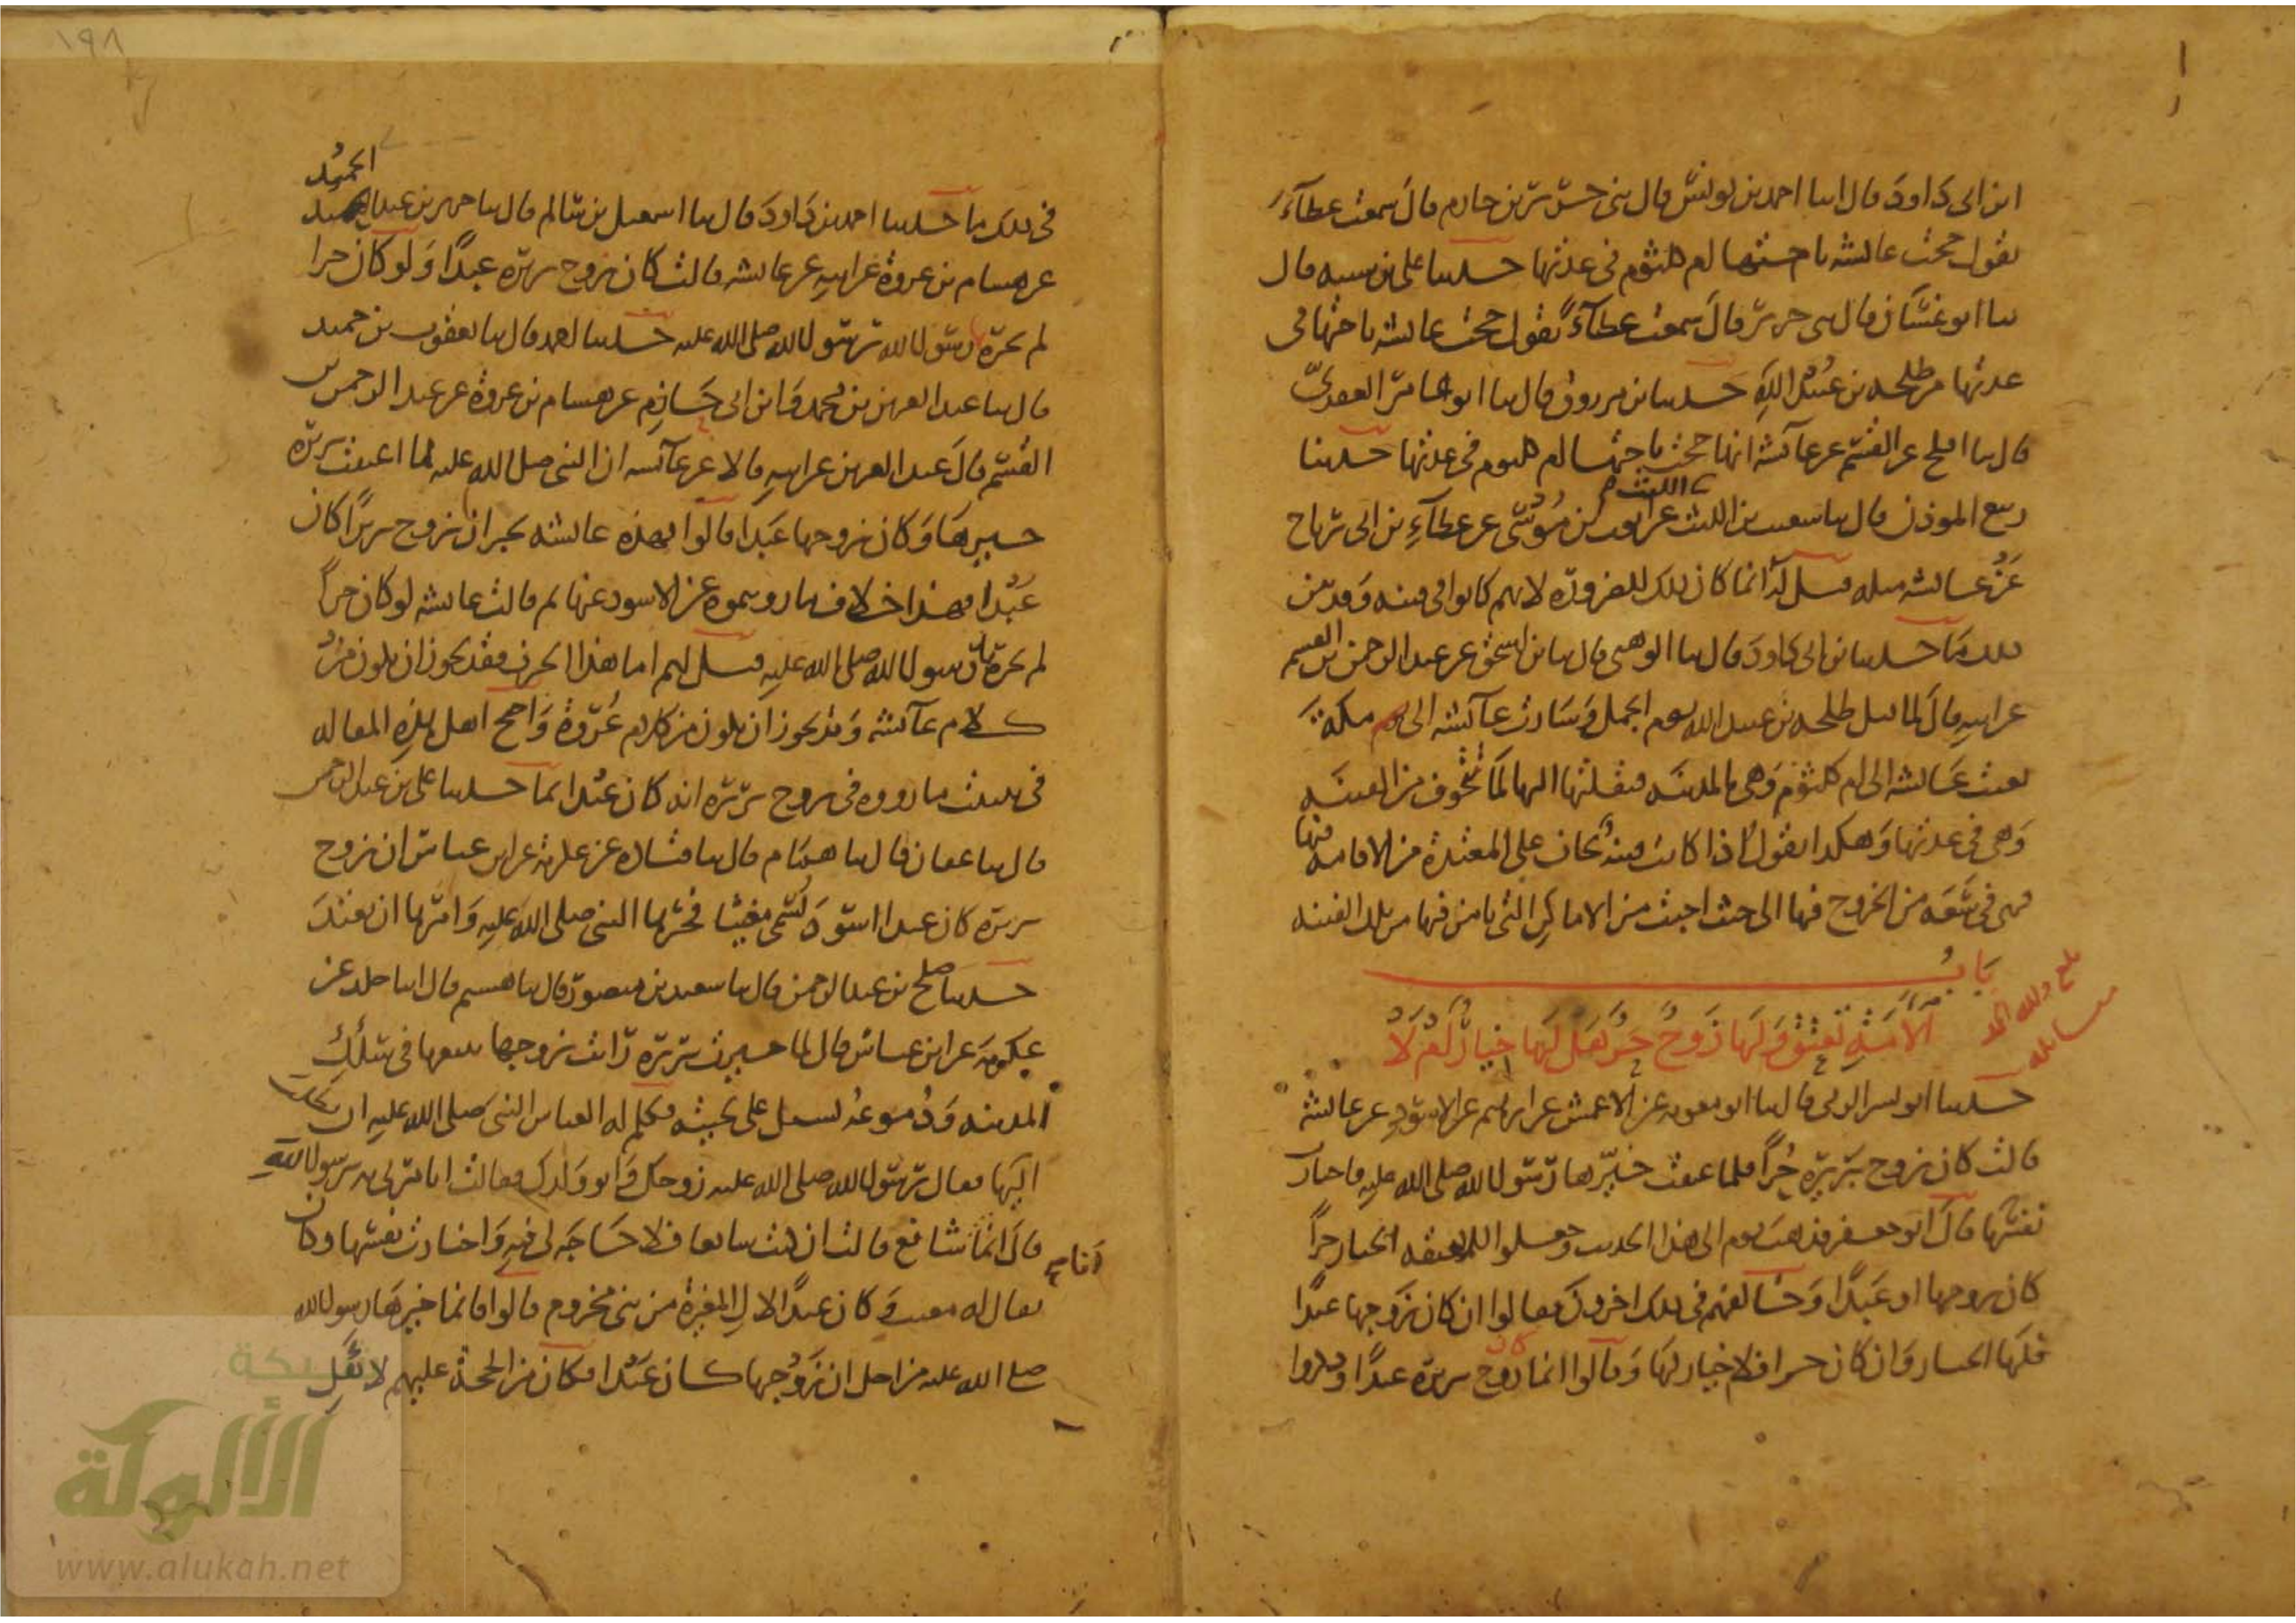 ابن ابى داود قال انبا احمد بن يونس قال ثنى جرير بن حازم قال سمعت عطاء
يقول حجت عائشه باختها ام كلثوم فى عدتها حدثنا على بن شيبه قال
ثنا ابو غسان قال ثنى جرير قال سمعت عطاء يقول حجت عائشه باختها فى
عدتها من طلحه بن عبيد الله حدثنا بن مرزوق قال ثنا ابو عامر العقدى
قال ثنا افلح عن القسم عن عائشه انها حجت باختها ام كلثوم فى عدتها حدثنا
ربيع الموذن قال ثنا شعيب بن الليث عن ايوب بن موسى عن عطاء بن ابى رباح
الليث
عن عائشه مثله قيل له انما كان ذلك للضروره لانهم كانوا فى فتنه وقد بين
ذلك ما حدثنا بن ابى داود قال ثنا الوهبى قال ثنا بن اسحق عن عبد الرحمن بن القسم
عن ابيه قال لما قتل طلحه بن عبيد الله يوم الجمل وسارت عائشه الى مكة
بعثت عائشه الى ام كلثوم وهى بالمدينه فنقلتها اليها لما تتخوف من الفتنه
وهى فى عدتها وهكذا يقول اذا كانت فتنه يخاف على المعتدة من الاقامه فيها
فهى فى سعه من الخروج فيها الى حيث احبت من الاماكن التى يامن فيها من تلك الفتنه
باب
الامة تعتق ولها زوج حر هل لها خيار ام لا
بلغ ولله الحمد
مقابله
حدثنا ابو بشر الرقى قال ثنا ابو معويه عن الاعمش عن ابرهيم عن الاسود عن عائشه
قالت كان زوج بريره حرا فلما عتقت خيرها رسول الله صلى الله عليه فاختارت
نفسها قال ابو جعفر فذهب قوم الى هذا الحديث وجعلوا للمعتقه الخيار حرا
كان زوجها او عبدا وخالفهم فى ذلك اخرون فقالوا ان كان زوجها عبدا
فلها الخيار وان كان حرا فلا خيار لها وقالوا انما كان زوج بريره عبدا وذكروا
١٩٨
الحميد
فى ذلك ما حدثنا احمد بن داود قال ثنا اسمعيل بن سالم قال ثنا جرير بن عبد
عن هشام بن عروة عن ابيه عن عائشه قالت كان زوج بريره عبدا ولو كان حرا
لم يخيره رسول الله صلى الله عليه حدثنا احمد قال ثنا يعقوب بن حميد
قال ثنا عبد العزيز بن محمد وابن ابى حازم عن هشام بن عروة عن عبد الرحمن بن
القسم قال عبد العزيز عن ابيه قالا عن عائشه ان النبى صلى الله عليه لما اعتقت بريره
خيرها وكان زوجها عبدا قالوا فهذه عائشه تخبر ان زوج بريرا كان
عبدا فهذا خلاف ما رويتموه عن الاسود عنها ثم قالت عائشه لو كان حرا
لم يخيره رسول الله صلى الله عليه قيل لهم اما هذا الحرف فقد يجوز ان يكون من
كلام عائشه وقد يجوز ان يكون من كلام عروة واحتج اهل هذه المقاله
فى تثبيت ما رووه فى زوج بريره انه كان عبدا بما حدثنا على بن عبد الرحمن
قال ثنا عفان قال ثنا همام قال ثنا قتاده عن عكرمه عن ابن عباس ان زوج
بريره كان عبدا اسود يسمى مغيثا فخيرها النبى صلى الله عليه وامرها ان تعتد
حدثنا صلح بن عبد الرحمن قال ثنا سعيد بن منصور قال ثنا هشيم قال انبا خلد عن
عكرمه عن ابن عباس قال لما خيرت بريره رايت زوجها يتبعها فى سكك
المدينه ودموعه تسيل على لحيته فكلم له العباس النبى صلى الله عليه ان يطلب
اليها فقال رسول الله صلى الله عليه زوجك وابو ولدك فقالت اتامرنى به يرسول الله
قال انما انا شافع قالت ان كنت شافعا فلا حاجه لى فيه واختارت نفسها وكان
يقال له مغيث وكان عبدا لال المغيرة من بنى مخزوم قالوا فانما خيرها رسول الله
صلى الله عليه من اجل ان زوجها كان عبدا فكان من الحجة عليهم لاهل
شبكة
الألوكة
www.alukah.net